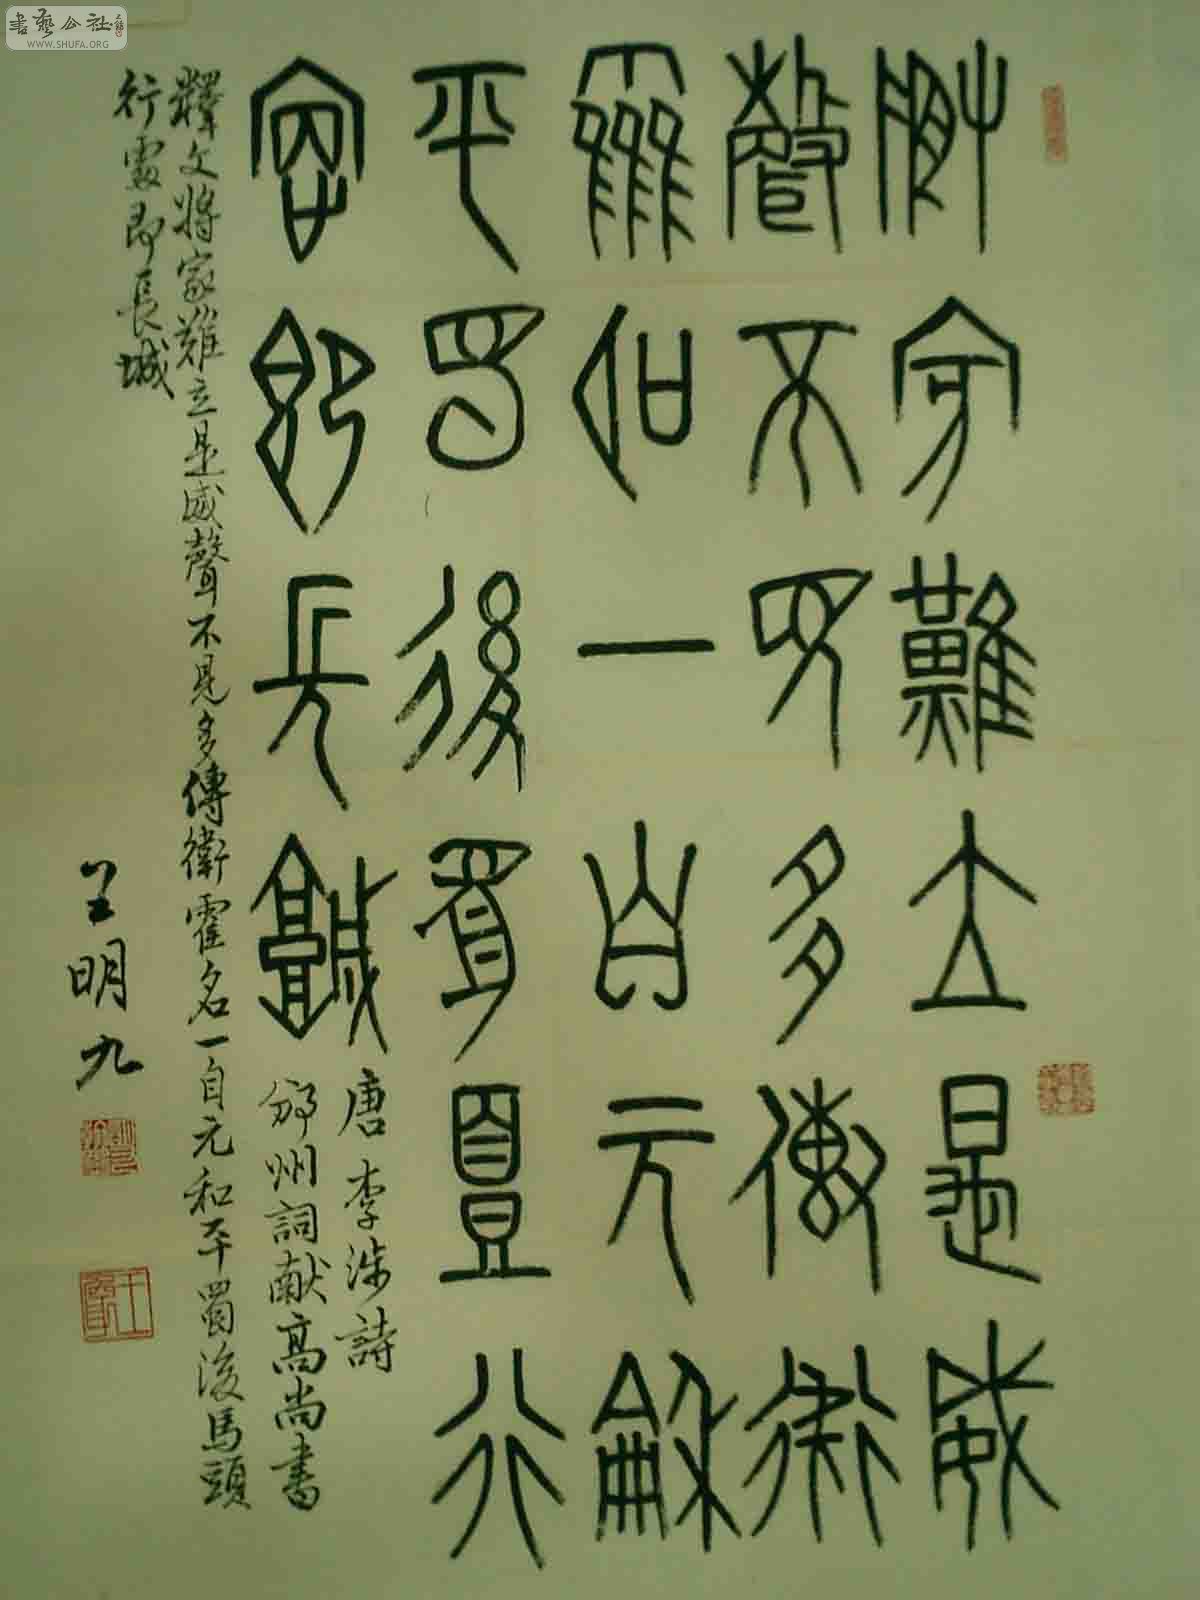 將家難立是威
聲不見多傳衛
霍名一自元龢
平蜀後馬頭行
處即長城
唐李涉詩
邠州詞献高尚書
釋文將家難立是威聲不見多傳衛霍名一自元和平蜀後馬頭
行處即長城
王明九
書藝公社
WWW.SHUFA.ORG